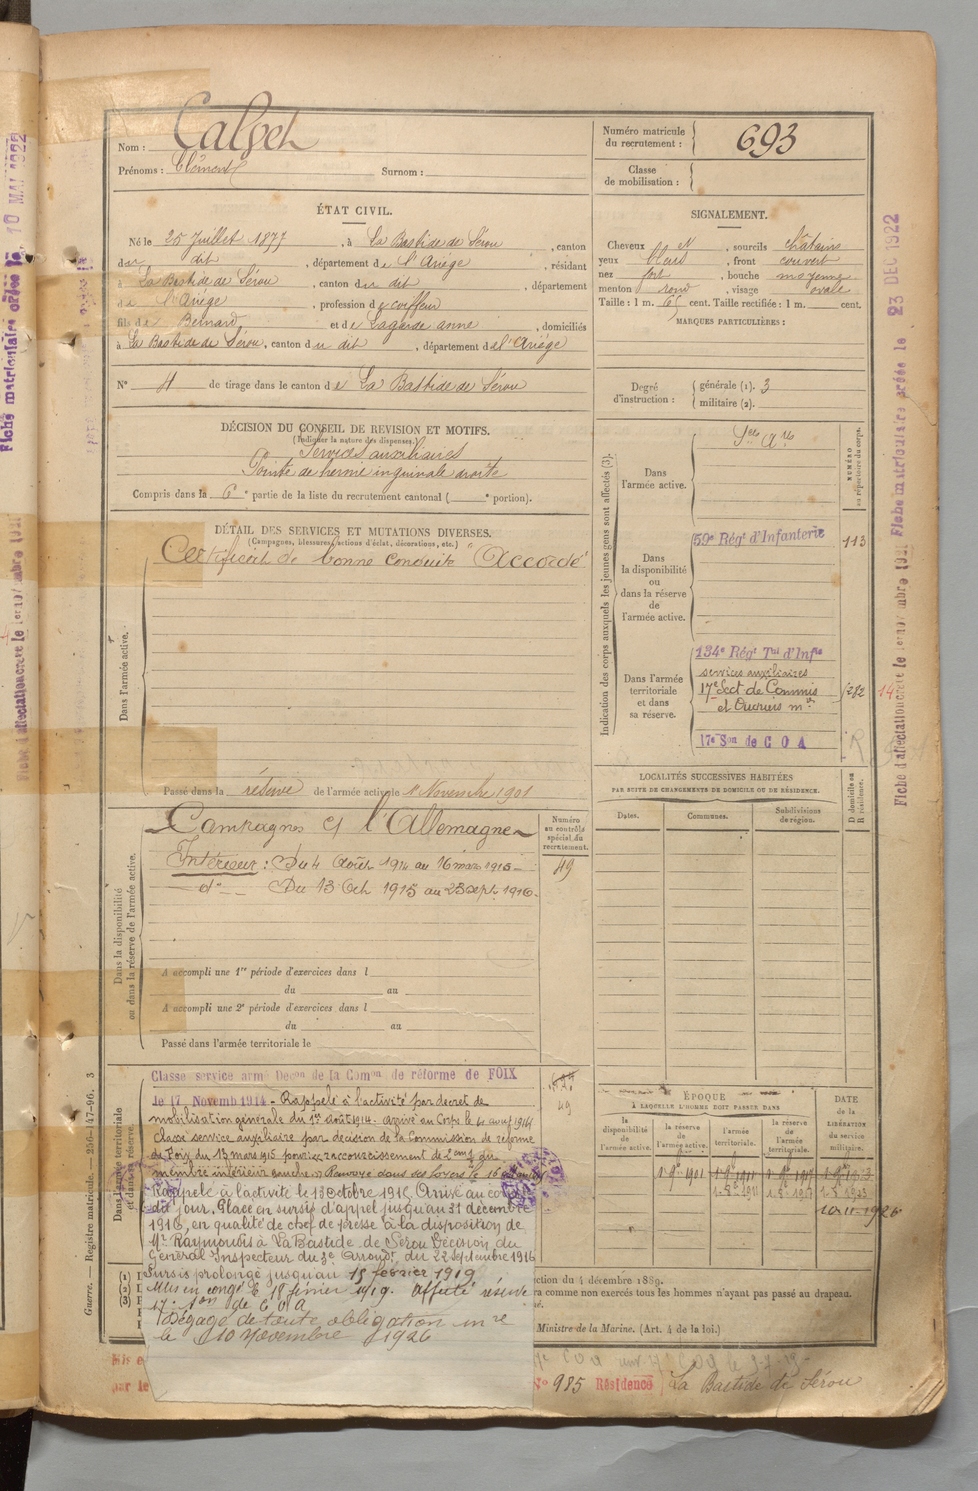 Nom : Calvet
Prénoms : Clément Surnom :
Numéro matricule du recrutement : 693
Classe de mobilisation :
ÉTAT CIVIL.
Né le 25 Juillet 1877, à La Bastide de Sérou, canton
du dit, département de l'Ariège, résidant
à La Bastide de Sérou, canton du dit, département
de l'Ariège, profession de coiffeur
fils de Bernard et de Lagarde anne, domiciliés
à La Bastide de Sérou, canton du dit, département de l'Ariège
N° 4 de tirage dans le canton de La Bastide de Sérou
SIGNALEMENT.
Cheveux et sourcils châtains
yeux bleus, front couvert
nez fort, bouche moyenne
menton rond, visage ovale
Taille : 1 m. 65 cent. Taille rectifiée : 1 m. cent.
MARQUES PARTICULIÈRES :
Degré d'instruction : générale (1). 3
militaire (2).
DÉCISION DU CONSEIL DE REVISION ET MOTIFS.
(Indiquer la nature des dispenses.)
Services auxiliaires
Pointe de hernie inguinale droite
Compris dans la 6e partie de la liste du recrutement cantonal ( e portion).
DÉTAIL DES SERVICES ET MUTATIONS DIVERSES.
(Campagnes, blessures, actions d'éclat, décorations, etc.)
Certificat de bonne conduite "Accordé"
Dans l'armée active.
Passé dans la réserve de l'armée active le 1 Novembre 1901
Indication des corps auxquels les jeunes gens sont affectés (3).
NUMÉRO au répertoire du corps.
Dans l'armée active.
Dans la disponibilité ou dans la réserve de l'armée active.
59e Régt d'Infanterie 113
Dans l'armée territoriale et dans sa réserve.
134e Régt Tal d'Infie
services auxiliaires
17e Sect de Commis
et Ouvriers
17e Son de C O A
LOCALITÉS SUCCESSIVES HABITÉES
PAR SUITE DE CHANGEMENTS DE DOMICILE OU DE RÉSIDENCE.
Dates. Communes. Subdivisions de région.
D domicile ou R résidence.
Dans la disponibilité ou dans la réserve de l'armée active.
Campagnes Cf l'Allemagne
Intérieur : Du 4 Août 1914 au 16 mars 1915
do Du 13 Oct 1915 au 23 Sept. 1916.
Numéro au contrôle spécial du recrutement.
49
A accompli une 1re période d'exercices dans l
du au
A accompli une 2e période d'exercices dans l
du au
Passé dans l'armée territoriale le
Dans l'armée territoriale et dans sa réserve.
Classé service armé Decon de la Comon de réforme de FOIX
le 17 Novemb 1914 - Rappelé à l'activité par décret de
mobilisation générale du 1er août 1914. arrivé au Corps le 4 août 1914
Classé service auxiliaire par décision de la Commission de réforme
de Foix du 13 mars 1915 pour raccourcissement de 2 cmf du
membre inférieur gauche. Renvoyé dans ses foyers le 16
Rappelé à l'activité le 13 octobre 1915, Arrivé au corps
dit jour. Placé en sursis d'appel jusqu'au 31 décembre
1916, en qualité de chef de presse à la disposition de
Mr Raymondis à La Bastide de Sérou Décision du
Général Inspecteur du 3e Arrondt du 22 Septembre 1916
Sursis prolongé jusqu'au 15 février 1919
Mis en congé le 18 février 1919. affecté réserve
17e son de C O A
Dégagé de toute obligation mre
le 10 Novembre 1926
49
ÉPOQUE
À LAQUELLE L'HOMME DOIT PASSER DANS
la disponibilité de l'armée active.
la réserve de l'armée active.
l'armée territoriale.
la réserve de l'armée territoriale.
DATE de la LIBÉRATION du service militaire.
10-11-1926
ction du 4 décembre 1889.
ra comme non exercés tous les hommes n'ayant pas passé au drapeau.
Ministre de la Marine. (Art. 4 de la loi.)
par le
N° 985 Résidence La Bastide de Sérou
Guerre. — Registre matricule. — 256-147-96. 3
Fiche matriculaire créée le 10 MAI 1922
Fiche matriculaire créée le 23 DEC 1922